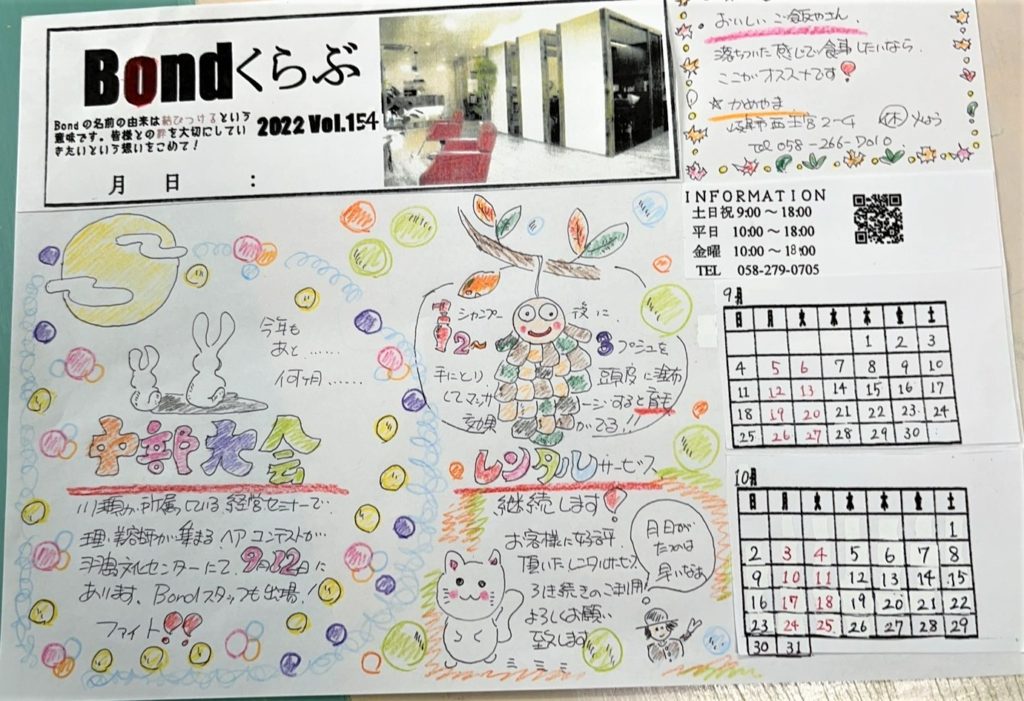 Bondくらぶ
Bondの名前の由来は結びつけるという
意味です。皆様との絆を大切にしてい
きたいという想いをこめて!
2022 Vol.154
月 日 :
おいしいご飯やさん
落ちついた感じで食事したいなら
ここがオススメです!
☆かめやま
岐阜市西土居2-4
休 火よう
Tel 058-266-0010
INFORMATION
土日祝 9:00 ～ 18:00
平日 10:00 ～ 18:00
金曜 10:00 ～ 18:00
TEL 058-279-0705
今年も
あと……
何ヶ月……
中部大会
川瀬が所属している経営セミナーで
理・美容師が集まるヘアコンテストが
羽島文化センターにて、9月12日に
あります。Bondスタッフも出場!
ファイト!!
シャンプー後に、
2～3プッシュを
手にとり、頭皮に塗布
してマッサージすると育毛
効果がでる!!
レンタルサービス
継続します!
お客様に好評
頂いたレンタルサービス
引き続きのご利用
よろしくお願い
致します
月日が
たつのは
早いなぁ
9月
日 月 火 水 木 金 土
1 2 3
4 5 6 7 8 9 10
11 12 13 14 15 16 17
18 19 20 21 22 23 24
25 26 27 28 29 30
10月
日 月 火 水 木 金 土
1
2 3 4 5 6 7 8
9 10 11 12 13 14 15
16 17 18 19 20 21 22
23 24 25 26 27 28 29
30 31